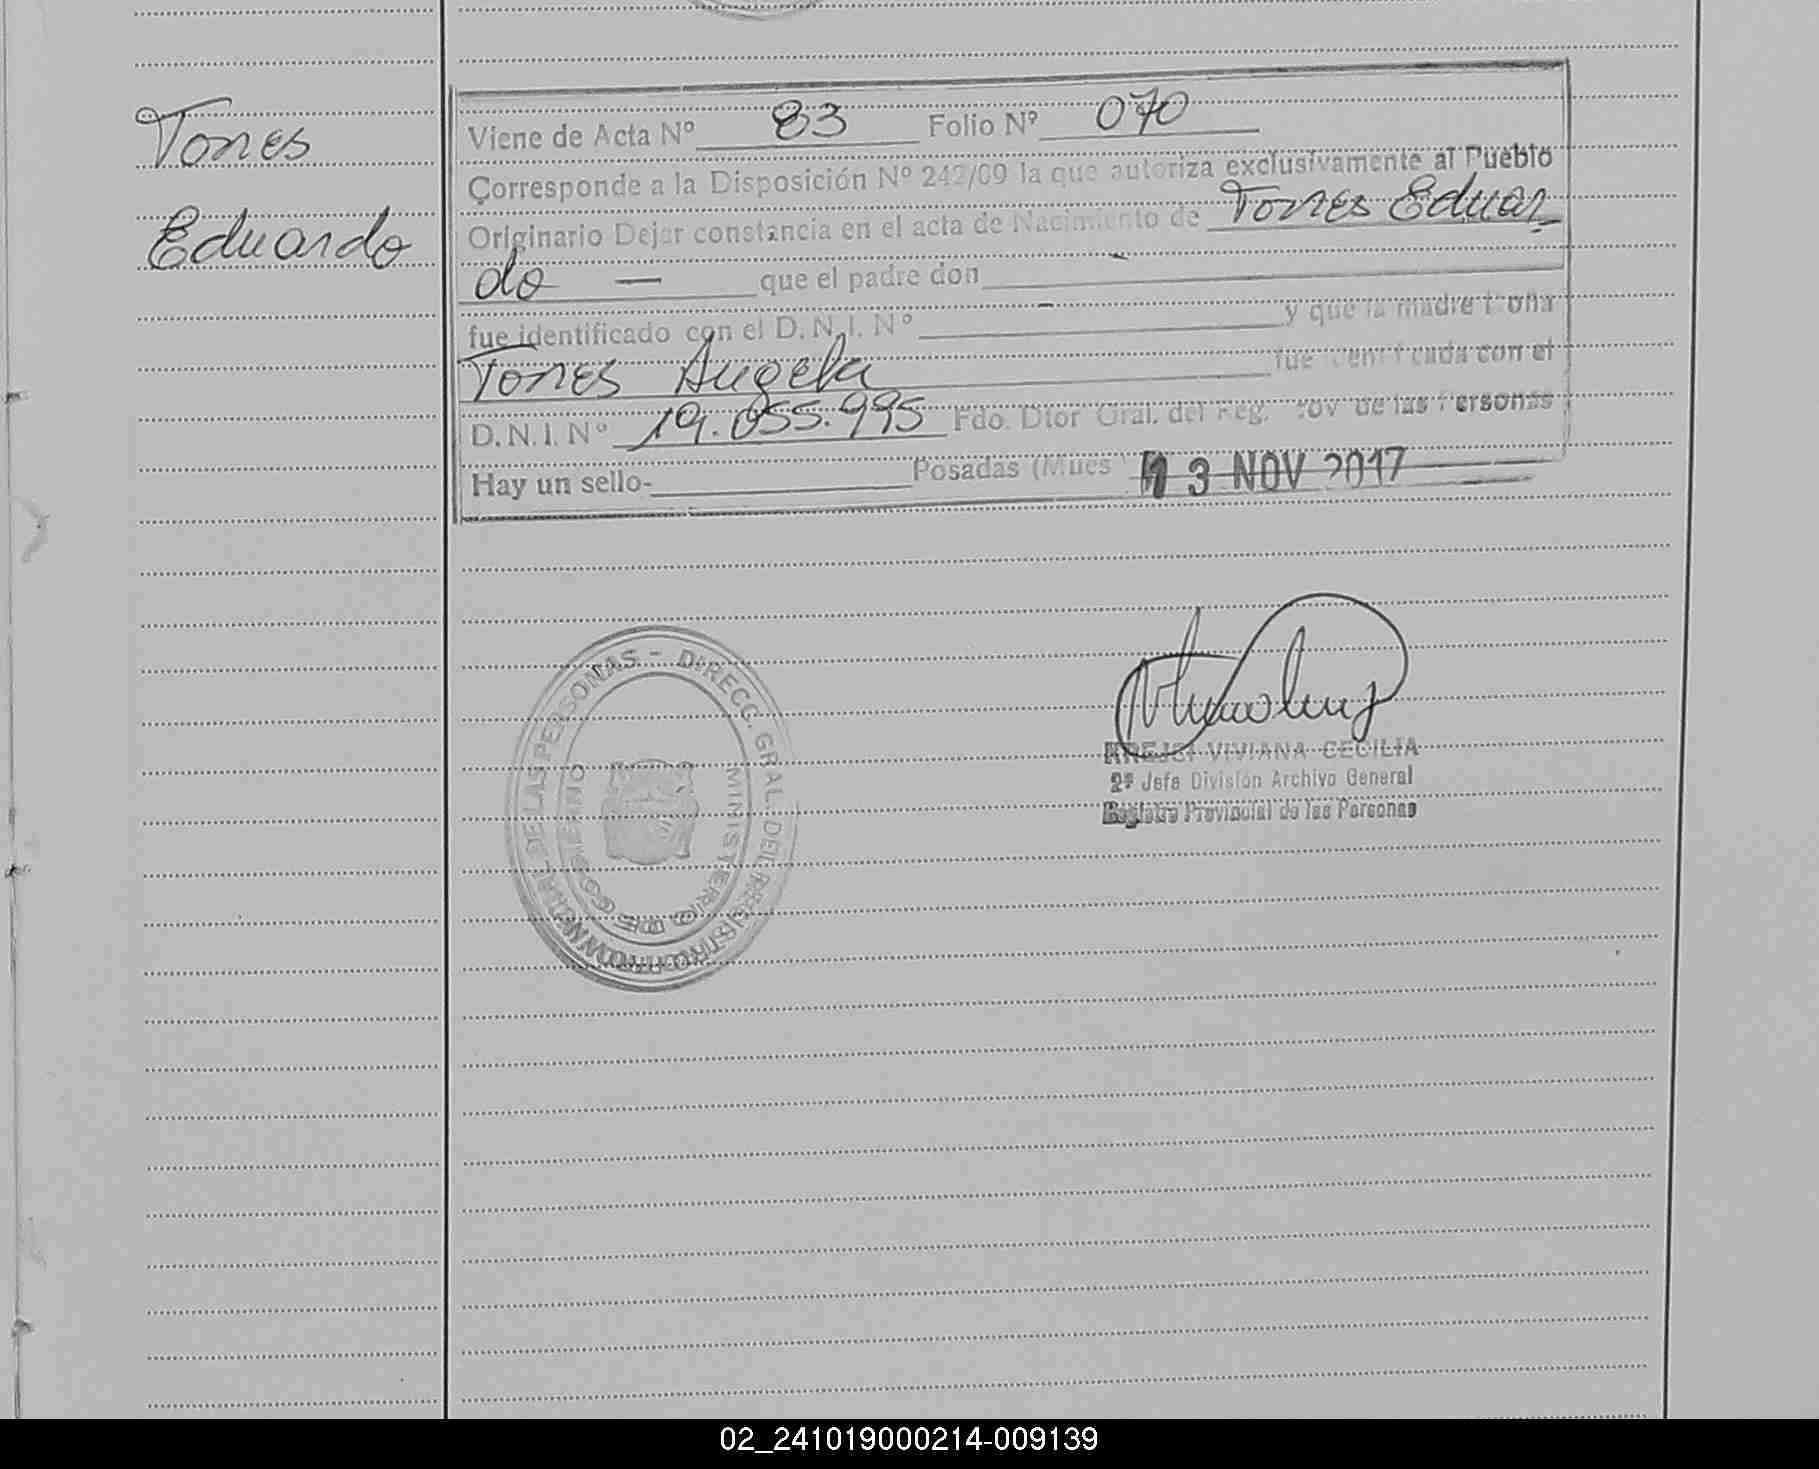 Torres
Eduardo
Viene de Acta Nº 83 Folio Nº 070
Corresponde a la Disposición Nº 242/09 la que autoriza exclusivamente al Pueblo
Originario Dejar constancia en el acta de Nacimiento de Torres Eduar
do — que el padre don
fue identificado con el D.N.I. Nº — y que la madre Doña
Torres Angela fue identificada con el
D.N.I. Nº 19.055.995 Fdo. Dtor Gral. del Reg. Prov de las Personas
Hay un sello- Posadas (Mnes 13 NOV 2017
DIRECC. GRAL. DEL REGISTRO PROVINCIAL DE LAS PERSONAS -
MINISTERIO DE GOBIERNO
VIVIANA CECILIA
2º Jefe División Archivo General
Registro Provincial de las Personas
02_241019000214-009139